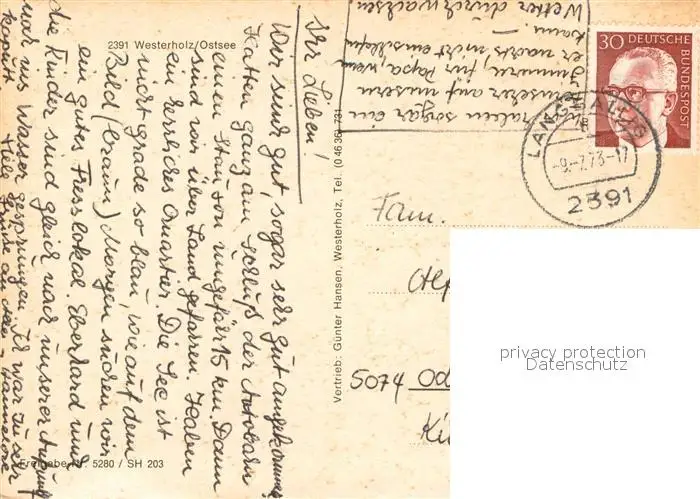 2391 Westerholz/Ostsee
Ihr Lieben!
Wir sind gut, sogar sehr gut angekommen
Hatten ganz am Schluß der Autobahn
einen Stau von ungefähr 15 km. Dann
sind wir über Land gefahren. Haben
ein herrliches Quartier. Die See ist
nicht grade so blau, wie auf dem
Bild (braun) Morgen suchen wir
ein gutes Fresslokal. Eberhard und
die Kinder sind gleich nach unserer Ankunft
war ins Wasser gesprungen. Ich war zu sehr
kaputt. Viele Grüße an alle Hannelore
Freigabe Nr. 5280 / SH 203
Vertrieb: Günter Hansen, Westerholz, Tel. (0 46 36) 731
Haben sogar ein
auf unserm
Zimmer, für Papa, wenn
er nachts nicht einschlafen
kann —
Wetter durchwachsen
30 DEUTSCHE
BUNDESPOST
LANGBALLIG
-9.-7.73-17
2391
Fam.
5074 Od
privacy protection
Datenschutz